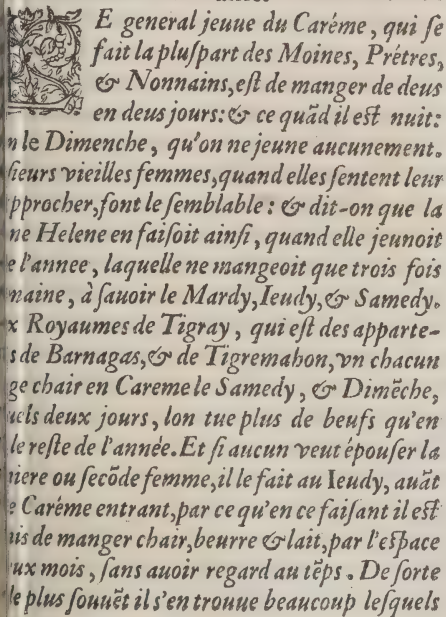 LE general jeune du Caréme, qui se
fait la pluspart des Moines, Prétres,
& Nonnains, est de manger de deus
en deus jours: & ce quãd il est nuit:
n le Dimenche, qu'on ne jeune aucunement.
sieurs vieilles femmes, quand elles sentent leur
pprocher, font le semblable: & dit-on que la
ne Helene en faisoit ainsi, quand elle jeunoit
e l'annee, laquelle ne mangeoit que trois fois
maine, à sauoir le Mardy, Ieudy, & Samedy.
x Royaumes de Tigray, qui est des apparte-
s de Barnagas, & de Tigremahon, vn chacun
ge chair en Careme le Samedy, & Dimẽche,
uels deux jours, lon tue plus de beufs qu'en
le reste de l'année. Et si aucun veut épouser la
niere ou secõde femme, il le fait au Ieudy, auãt
e Caréme entrant, par ce qu'en ce faisant il est
is de manger chair, beurre & lait, par l'espace
ux mois, sans auoir regard au tẽps. De sorte
le plus souuẽt il s'en trouue beaucoup lesquels